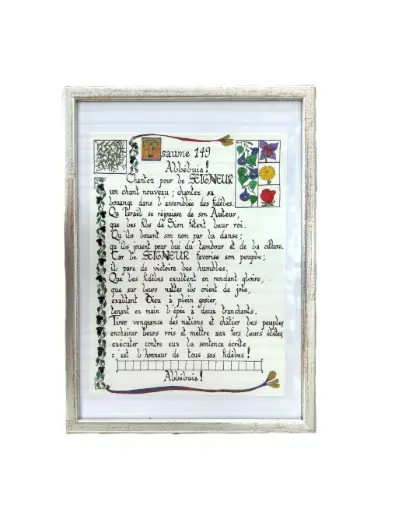 Psaume 149
Alleluia !
Chantez pour le SEIGNEUR
un chant nouveau ; chantez sa
louange dans l'assemblée des fidèles.
Qu'Israël se réjouisse de son Auteur,
que les fils de Sion fêtent leur roi.
Qu'ils louent son nom par la danse ;
qu'ils jouent pour lui du tambour et de la cithare.
Car le SEIGNEUR favorise son peuple ;
il pare de victoire les humbles.
Que les fidèles exultent en rendant gloire,
que sur leurs nattes ils crient de joie,
exaltant Dieu à plein gosier,
tenant en main l'épée à deux tranchants.
Tirer vengeance des nations et châtier les peuples
enchaîner leurs rois et mettre aux fers leurs élites
exécuter contre eux la sentence écrite,
c'est l'honneur de tous ses fidèles !
Alleluia !